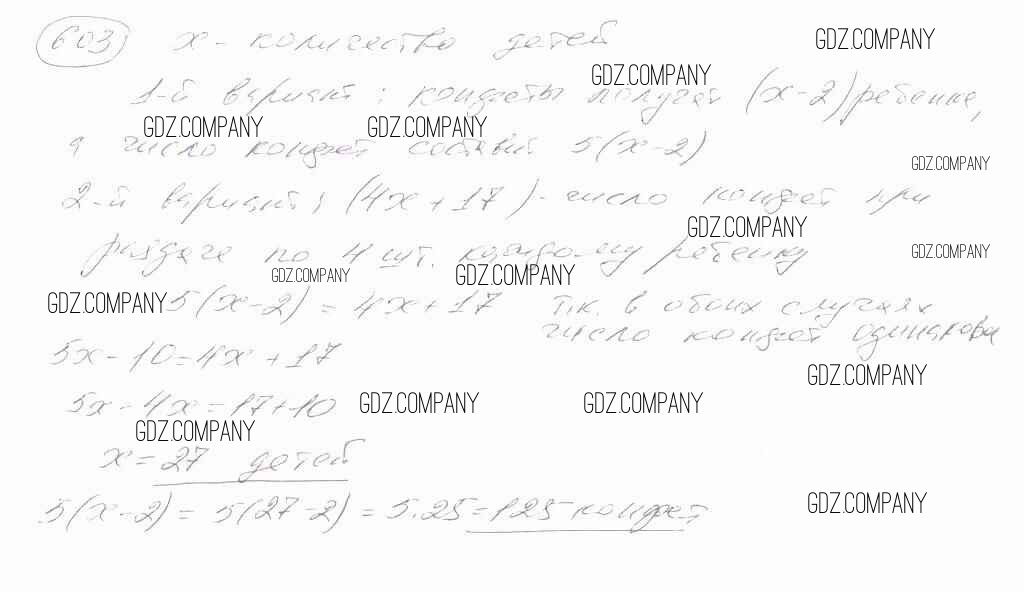 603 x - количество детей GDZ.COMPANY
GDZ.COMPANY
1-й вариант: конфеты получат (x-2) ребенка,
GDZ.COMPANY GDZ.COMPANY
а число конфет составит 5(x-2)
GDZ.COMPANY
2-й вариант: (4x+17) - число конфет при
GDZ.COMPANY
раздаче по 4 шт. каждому ребенку GDZ.COMPANY
GDZ.COMPANY GDZ.COMPANY
GDZ.COMPANY 5(x-2) = 4x+17 т.к. в обоих случаях
число конфет одинаково
5x-10=4x+17
GDZ.COMPANY
5x-4x=17+10 GDZ.COMPANY GDZ.COMPANY
GDZ.COMPANY
x=27 детей
5(x-2) = 5(27-2) = 5.25=125 конфет GDZ.COMPANY